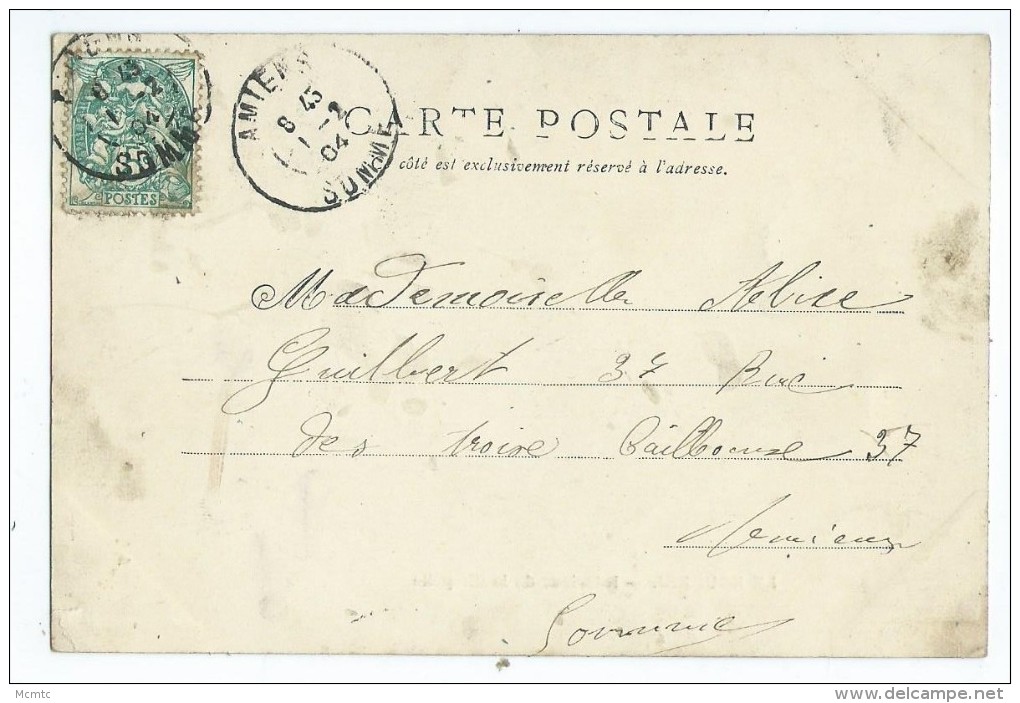 AMIENS
8 45
1 - 2
04
SOMME
POSTES
SOMME
CARTE POSTALE
côté est exclusivement réservé à l'adresse.
Mademoiselle Alice
Guilbert 37 Rue
des troise Caillouse 37
Amiens
Somme
Mcmtc
www.delcampe.net